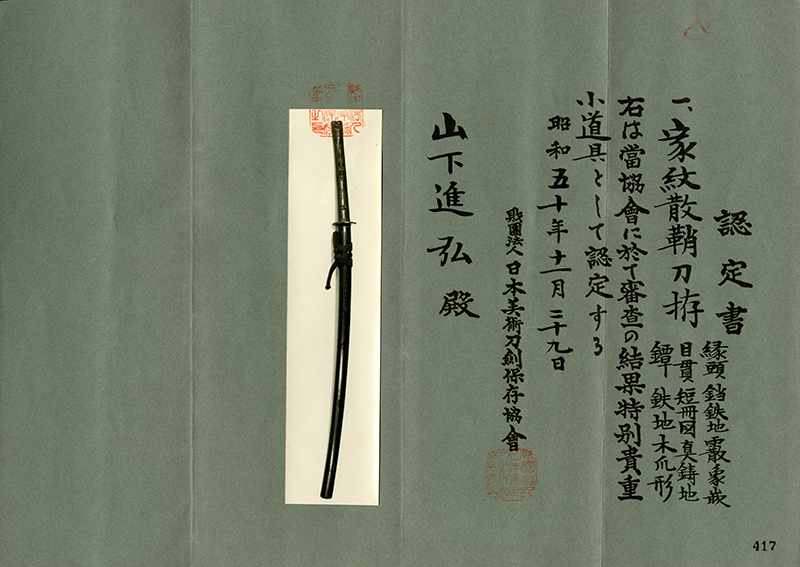 認定書
一、家紋散鞘刀拵
縁頭 鉄地雲象嵌
目貫 短冊図真鍮地
鐔 鉄地木瓜形
右は當協會に於て審査の結果特別貴重
小道具として認定する
昭和五十年十一月二十九日
財團法人日本美術刀剣保存協會
山下進弘殿
417